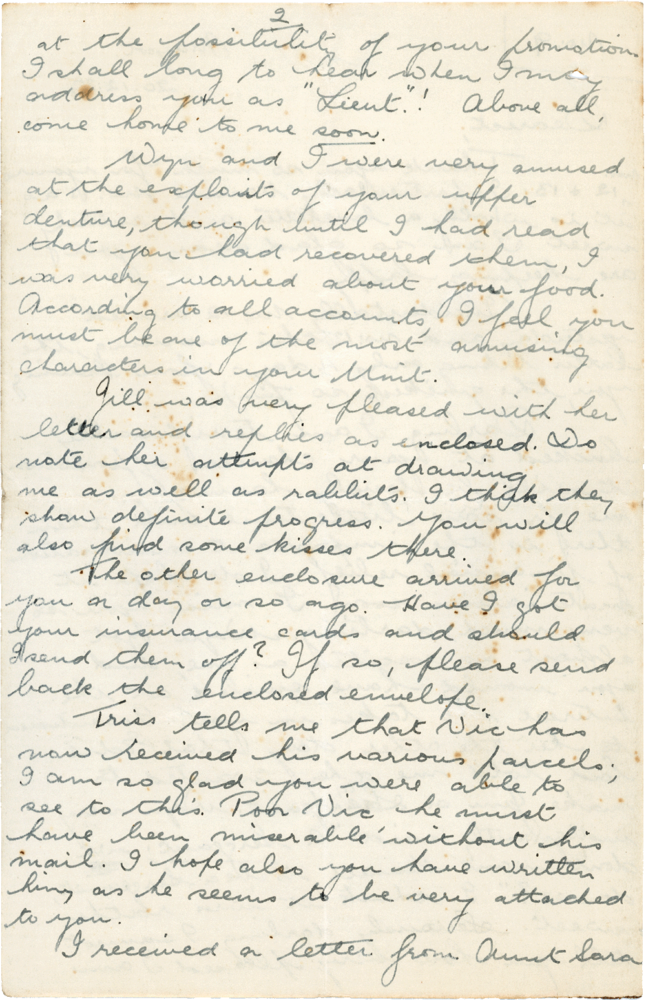 2
at the possibility of your promotion
I shall long to hear when I may
address you as "Lieut."! Above all,
come home to me soon.
Wyn and I were very amused
at the exploits of your upper
denture, though until I had read
that you had recovered them, I
was very worried about your food.
According to all accounts, I feel you
must be one of the most amusing
characters in your Unit.
Gill was very pleased with her
letter and replies as enclosed. Do
note her attempts at drawing
me as well as rabbits. I think they
show definite progress. You will
also find some kisses there.
The other enclosure arrived for
you a day or so ago. Have I got
your insurance cards and should
I send them off? If so, please send
back the enclosed envelope.
Triss tells me that Vic has
now received his various parcels;
I am so glad you were able to
see to this. Poor Vic he must
have been miserable without his
mail. I hope also you have written
him, as he seems to be very attached
to you.
I received a letter from Aunt Sara